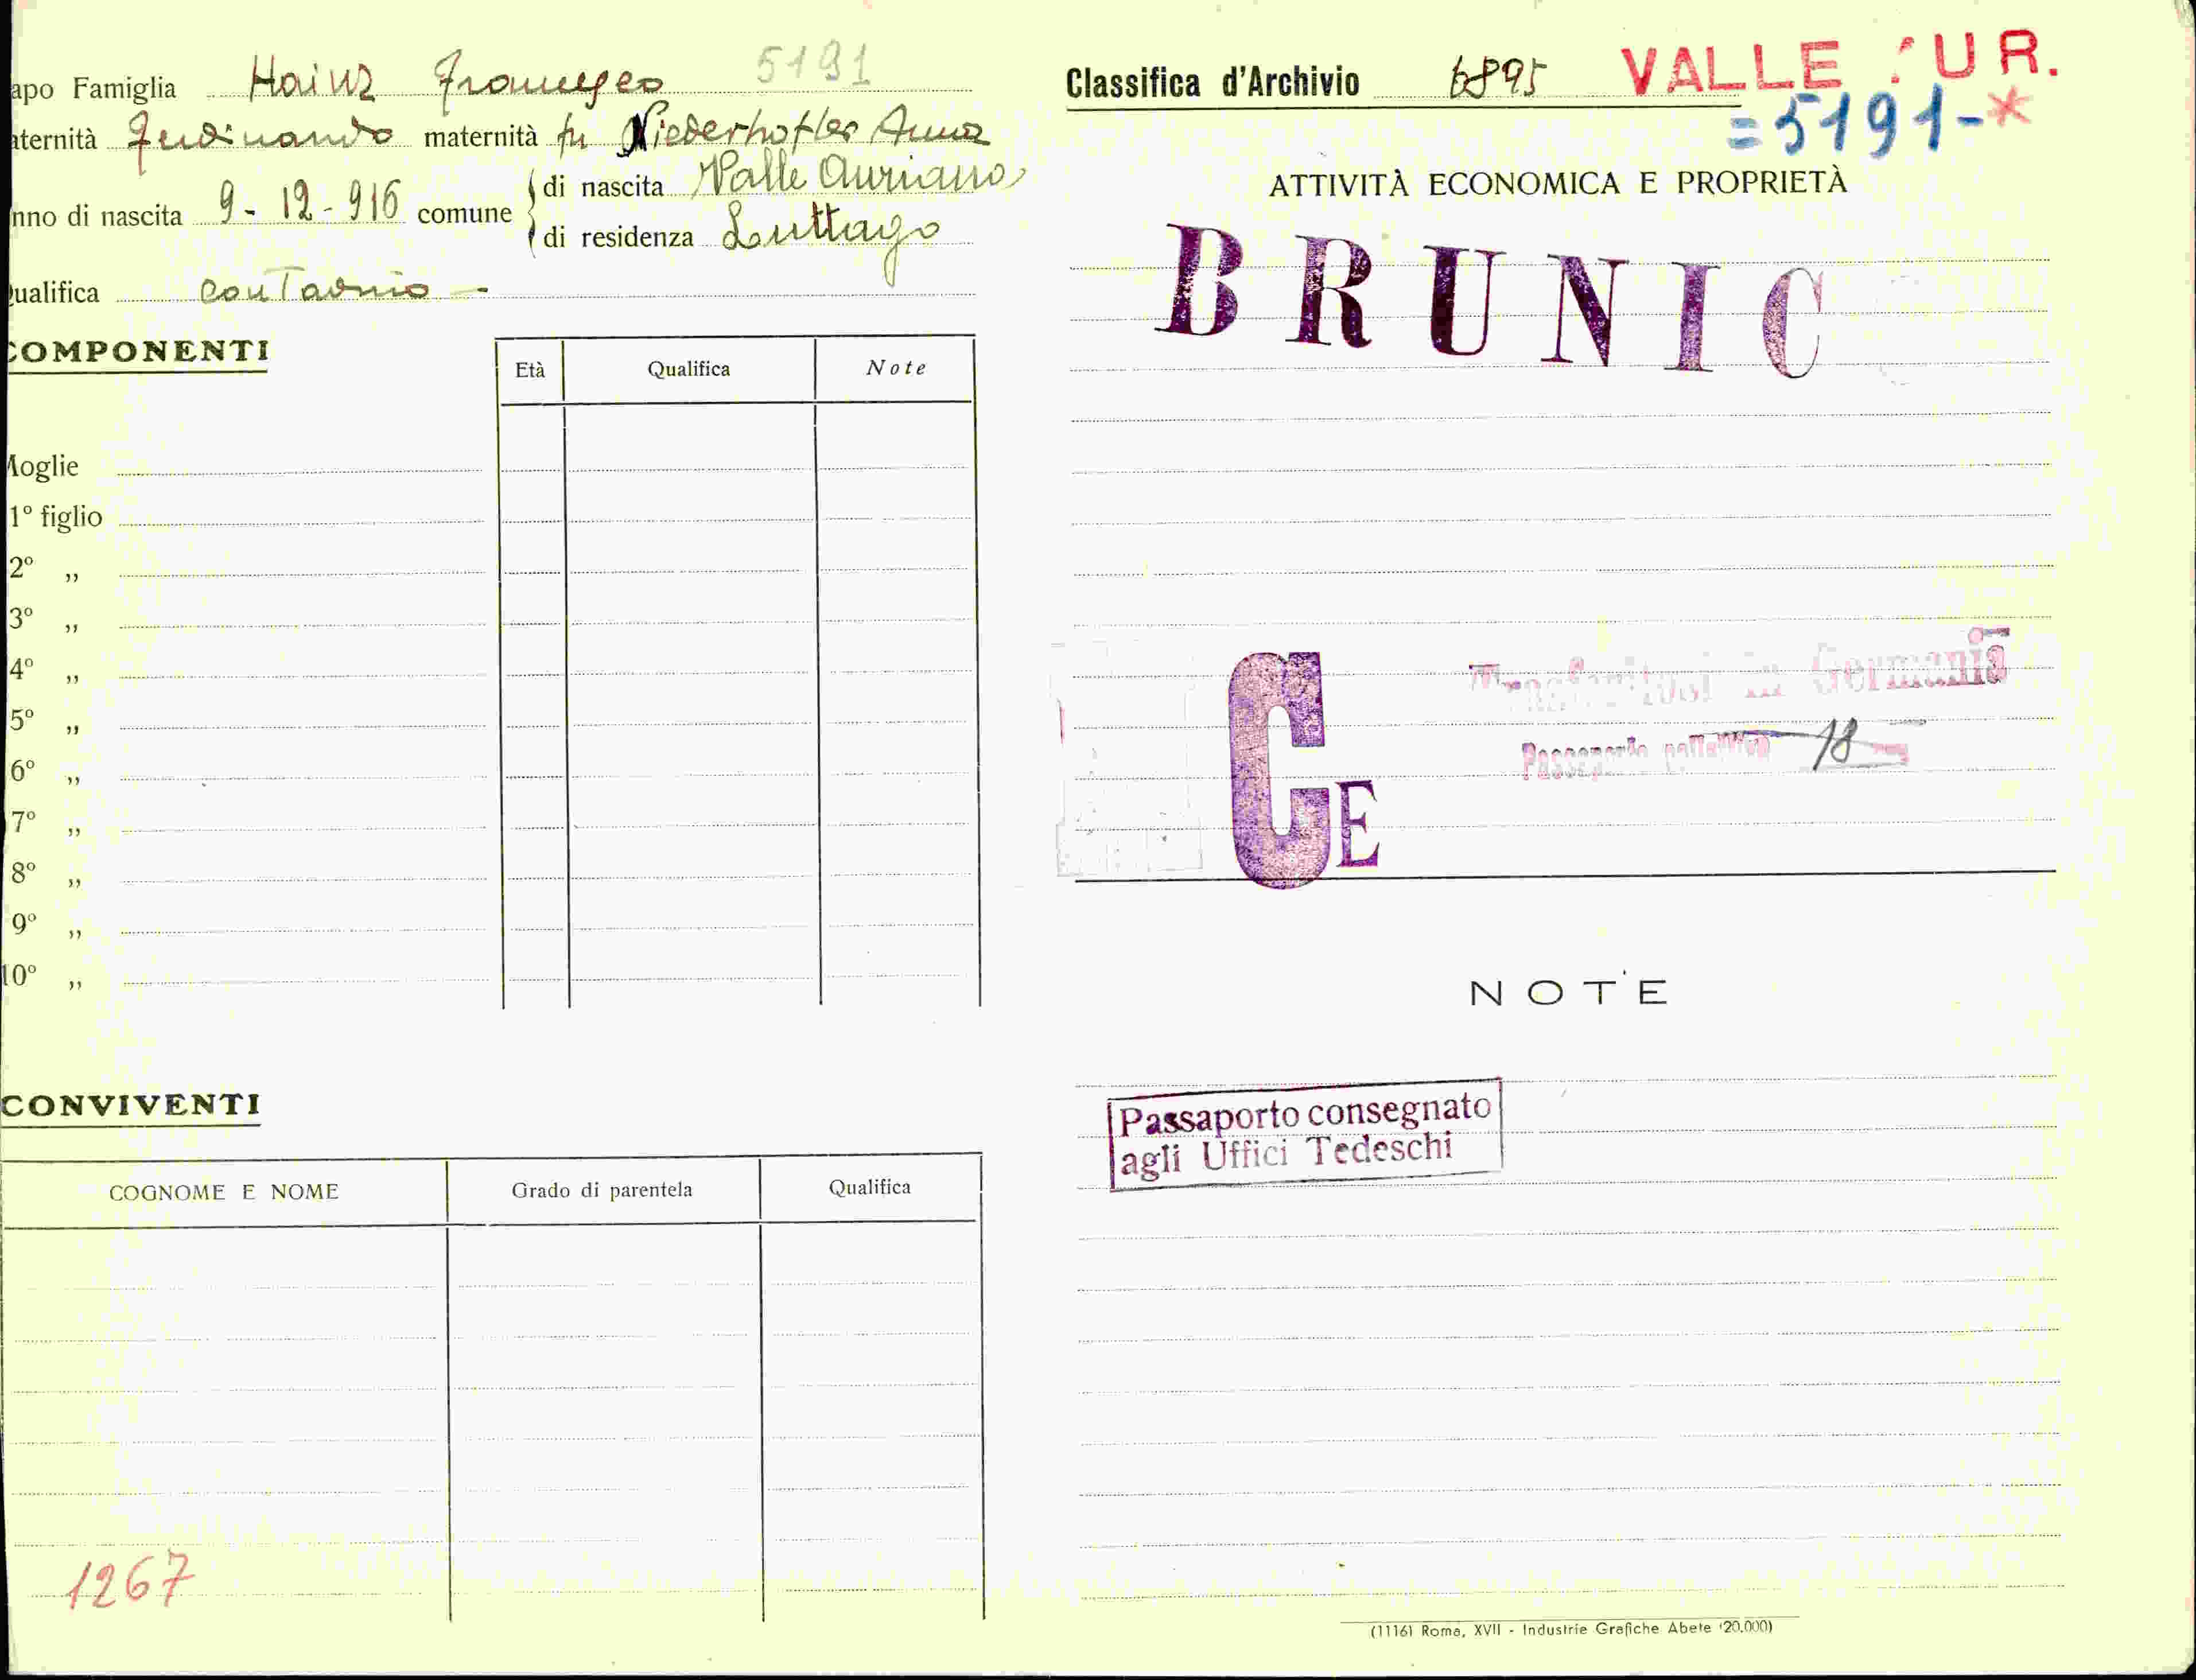 apo Famiglia Hainz Francesco 5191
aternità Ferdinando maternità fu Niederhofler Anna
nno di nascita 9-12-916 comune di nascita Valle Aurina
di residenza Luttago
ualifica contadino -
COMPONENTI
Età Qualifica Note
Moglie
1° figlio
2° ,,
3° ,,
4° ,,
5° ,,
6° ,,
7° ,,
8° ,,
9° ,,
10° ,,
CONVIVENTI
COGNOME E NOME Grado di parentela Qualifica
1267
Classifica d'Archivio 6895 VALLE AUR.
=5191-*
ATTIVITÀ ECONOMICA E PROPRIETÀ
BRUNIC
Trasferitosi in Germania
Passaporto collettivo 18
CE
NOTE
Passaporto consegnato
agli Uffici Tedeschi
(1116) Roma, XVII - Industrie Grafiche Abete (20.000)